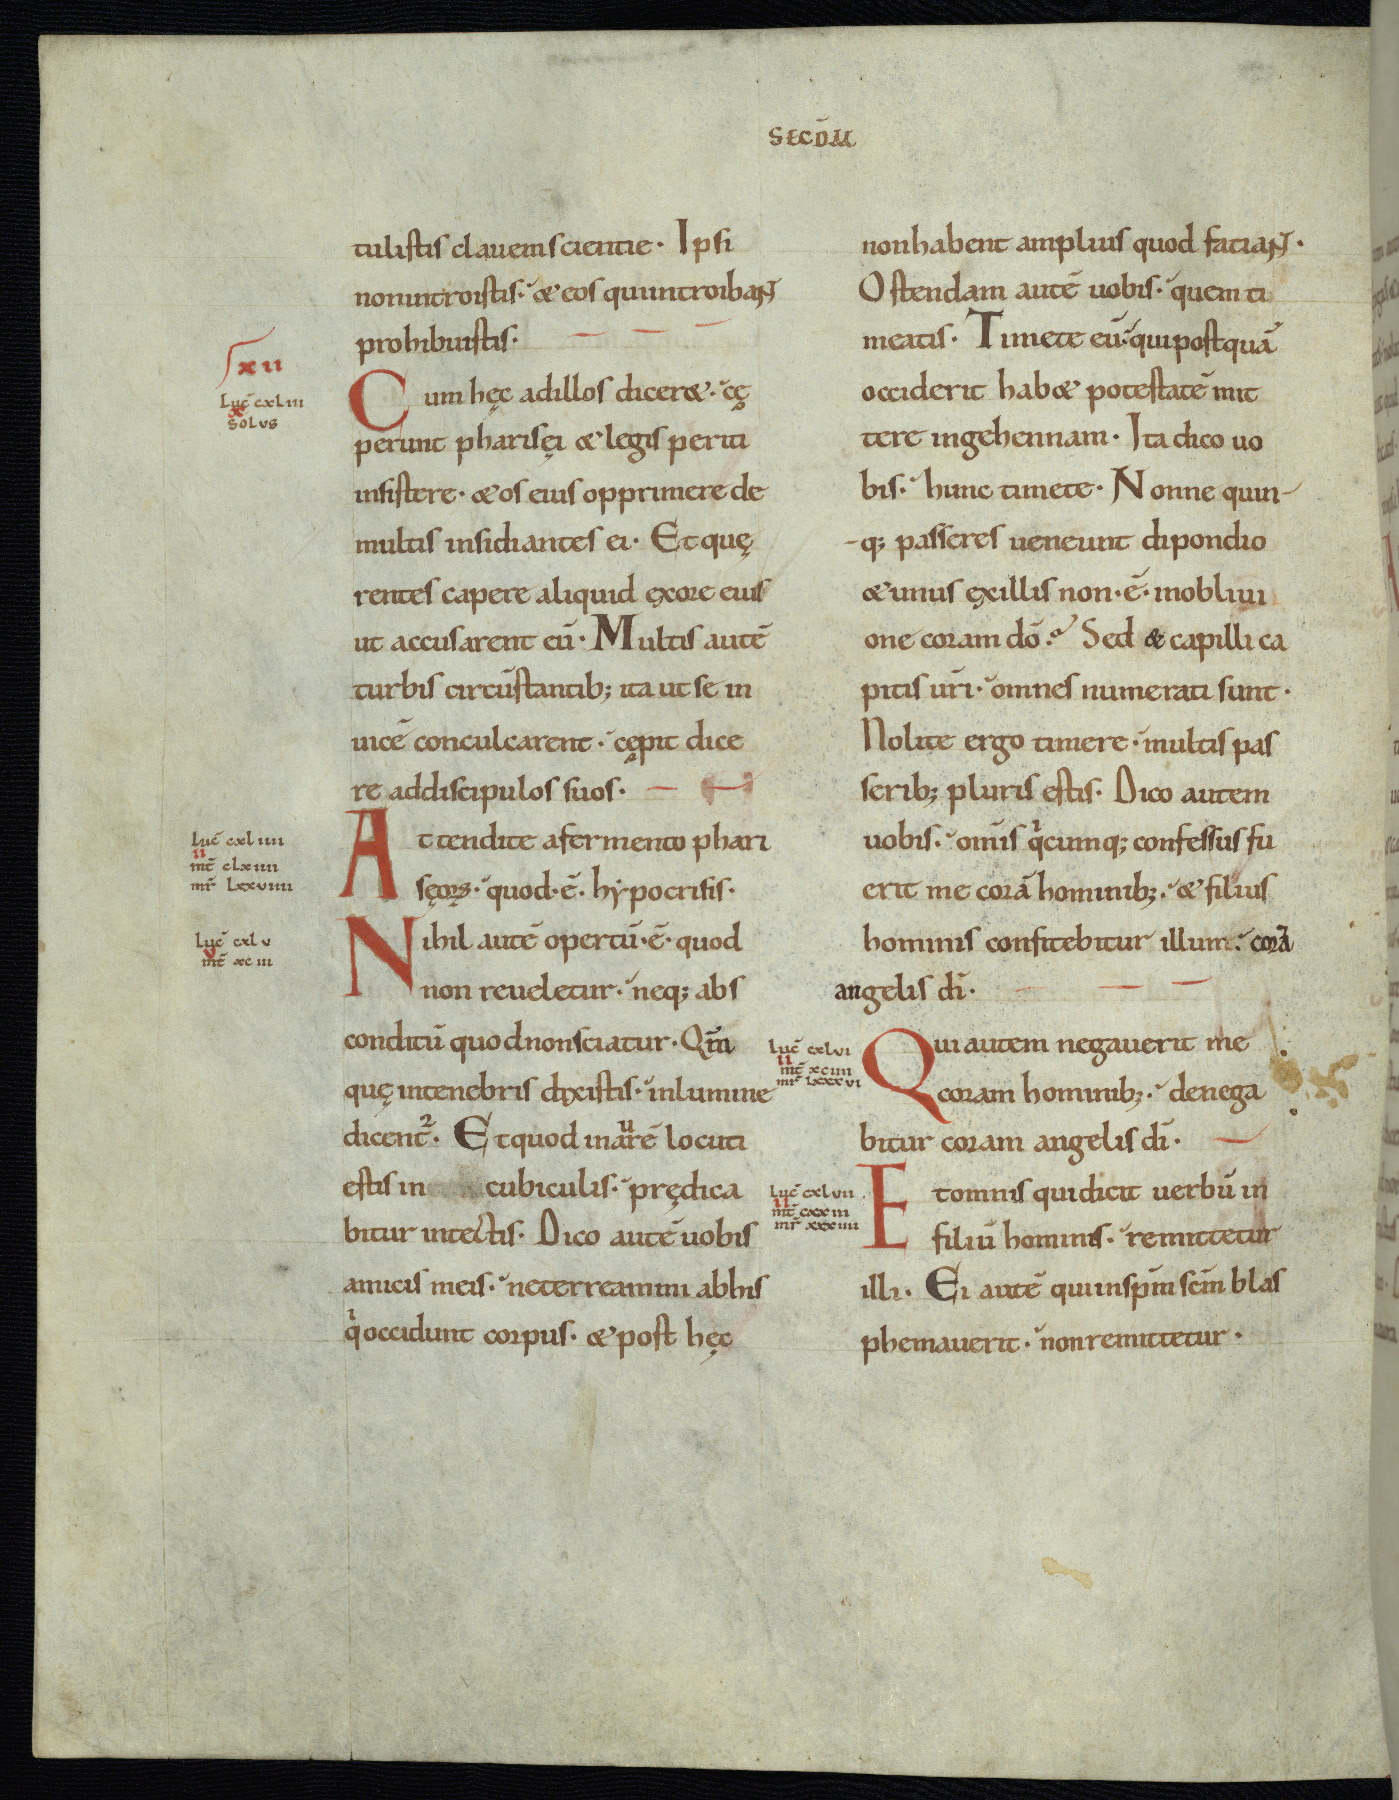 SECD̄M
tulistis clauem scientie· Ipsi
non introistis· & eos qui introibant
prohibuistis·
xii
Luc̄ cxliii
x
solus
Cum hęc ad illos dicer&· cę
perunt pharisęi & legis periti
insistere· & os eius opprimere de
multis insidiantes ei· Et quę
rentes capere aliquid ęx ore eius
ut accusarent eū· Multis autē
turbis circūstantib; ita ut se in
uicē conculcarent· cępit dice
re ad discipulos suos·
Luc̄ cxliiii
ii
mt̄ clxiiii
mr̄ lxxviiii
Attendite a fermento phari
sęoꝝ· quod·ē·hẏpocrisis·
Luc̄ cxlv
v
mt̄ xciii
Nihil autē opertū·ē· quod
non reueletur· neq; abs
conditū quod non sciatur· Qm̄
quę in tenebris dixistis· in lumine
dicent᷑· Et quod in aurē locuti
estis in cubiculis· prędica
bitur in tectis· Dico autē uobis
amicis meis· ne terreamini ab his
qͥ occidunt corpus· & post hęc
non habent amplius quod faciant·
Ostendam autē uobis· quem ti
meatis· Timete eū· qui postquā
occiderit hab& potestatē mit
tere in gehennam· Ita dico uo
bis· hunc timete· Nonne quin-
-q; passeres ueneunt dipondio
& unus ęx illis non·ē· in obliui
one coram dō· Sed & capilli ca
pitis ur̄i· omnes numerati sunt·
Nolite ergo timere· multis pas
serib; pluris estis· Dico autem
uobis· om̄is qͥcumq; confessus fu
erit me corā hominib;· & filius
hominis confitebitur illum· corā
angelis dī·
Luc̄ cxlvi
ii
mt̄ xciiii
mr̄ lxxxvi
Qui autem negauerit me
coram hominib;· denega
bitur coram angelis dī·
Luc̄ cxlvii
ii
mt̄ cxxiii
mr̄ xxxiiii
Et omnis qui dicit uerbū in
filiū hominis· remittetur
illi· Ei autē qui in sp̄m sc̄m blas
phemauerit· non remittetur·